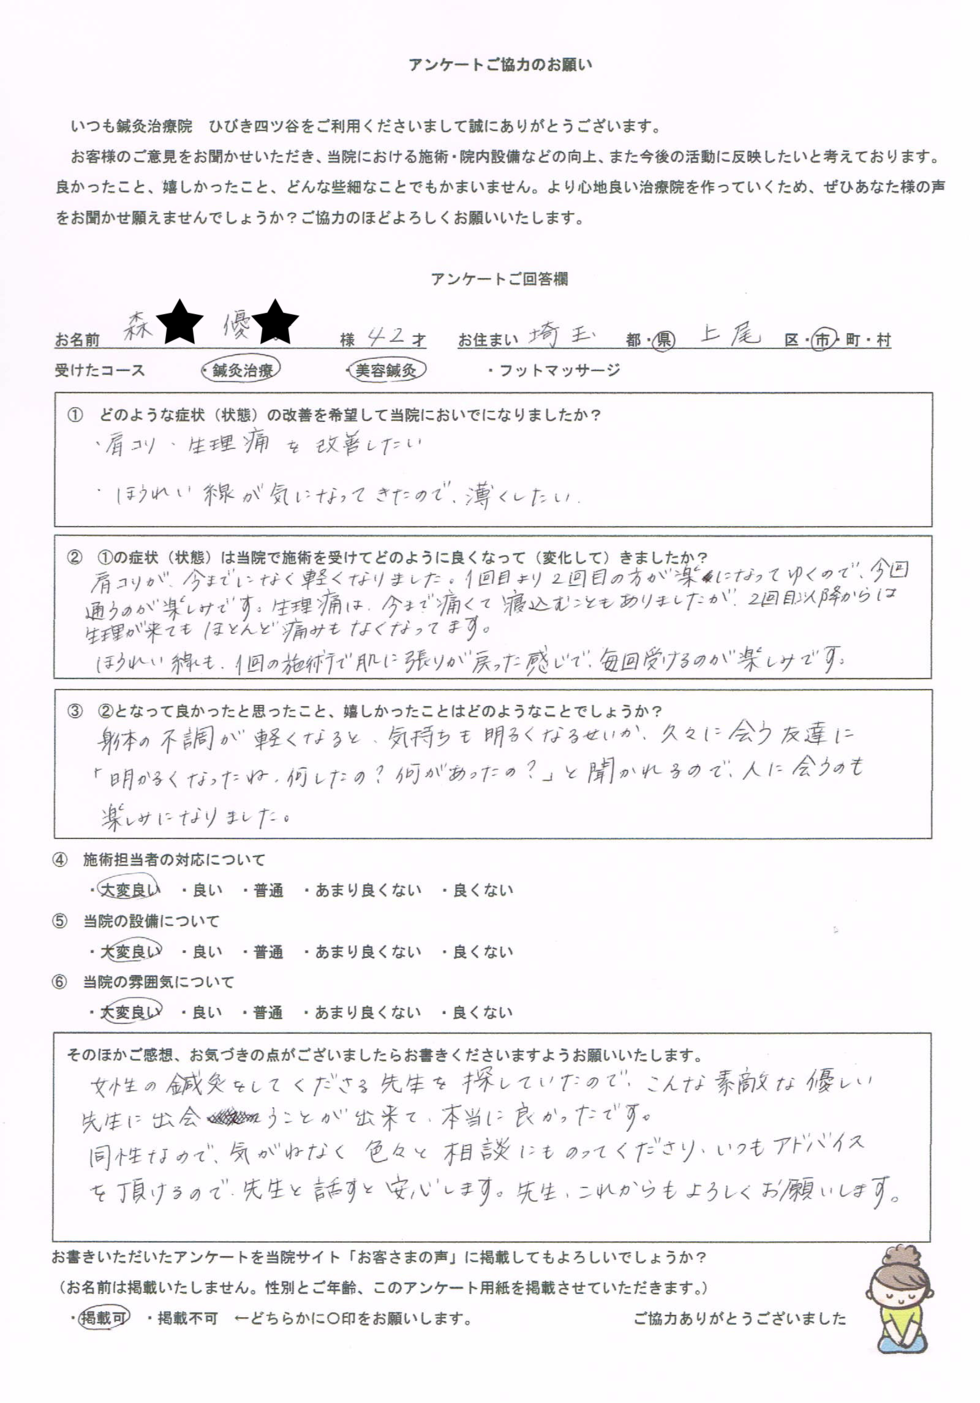 アンケートご協力のお願い
いつも鍼灸治療院　ひびき四ツ谷をご利用くださいまして誠にありがとうございます。
お客様のご意見をお聞かせいただき、当院における施術・院内設備などの向上、また今後の活動に反映したいと考えております。
良かったこと、嬉しかったこと、どんな些細なことでもかまいません。より心地良い治療院を作っていくため、ぜひあなた様の声
をお聞かせ願えませんでしょうか？ご協力のほどよろしくお願いいたします。
アンケートご回答欄
お名前　森　優　様　42才　お住まい　埼玉　都・県　上尾　区・市・町・村
受けたコース　・鍼灸治療　・美容鍼灸　・フットマッサージ
①　どのような症状（状態）の改善を希望して当院においでになりましたか？
・肩コリ・生理痛を改善したい
・ほうれい線が気になってきたので、薄くしたい.
②　①の症状（状態）は当院で施術を受けてどのように良くなって（変化して）きましたか？
肩コリが、今までになく軽くなりました。1回目より2回目の方が楽になってゆくので、今回
通うのが楽しみです。生理痛は、今まで痛くて寝込むこともありましたが、2回目以降からは
生理が来てもほとんど痛みもなくなってます。
ほうれい線も、1回の施術で肌に張りが戻った感じで、毎回受けるのが楽しみです。
③　②となって良かったと思ったこと、嬉しかったことはどのようなことでしょうか？
身体の不調が軽くなると、気持ちも明るくなるせいか、久々に会う友達に
「明かるくなったね、何したの？何があったの？」と聞かれるので、人に会うのも
楽しみになりました。
④　施術担当者の対応について
・大変良い　・良い　・普通　・あまり良くない　・良くない
⑤　当院の設備について
・大変良い　・良い　・普通　・あまり良くない　・良くない
⑥　当院の雰囲気について
・大変良い　・良い　・普通　・あまり良くない　・良くない
そのほかご感想、お気づきの点がございましたらお書きくださいますようお願いいたします。
女性の鍼灸をしてくださる先生を探していたので、こんな素敵な優しい
先生に出会うことが出来て、本当に良かったです。
同性なので、気がねなく色々と相談にものってくださり、いつもアドバイス
を頂けるので、先生と話すと安心します。先生、これからもよろしくお願いします。
お書きいただいたアンケートを当院サイト「お客さまの声」に掲載してもよろしいでしょうか？
（お名前は掲載いたしません。性別とご年齢、このアンケート用紙を掲載させていただきます。）
・掲載可　・掲載不可　←どちらかに〇印をお願いします。　ご協力ありがとうございました